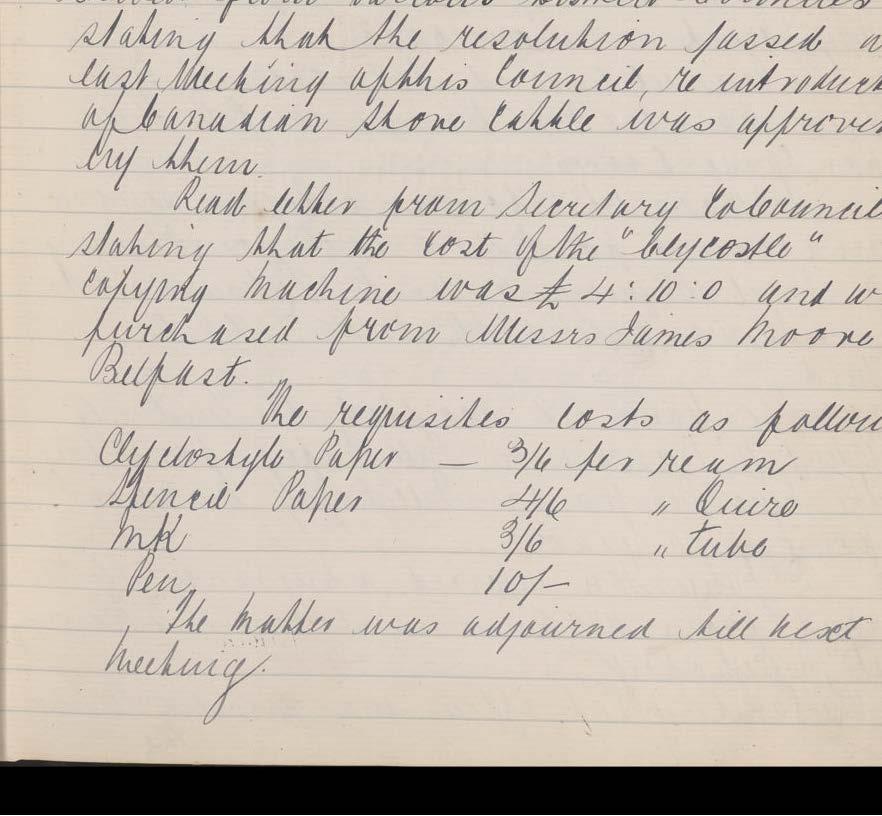 from various District Councils
stating that the resolution passed a
last Meeting of this Council, re introduct
of Canadian Store Cattle was approve
by them.
Read letter from Secretary Co Council
stating that the Cost of the "Clycostle"
copying Machine was £4:10:0 and w
purchased from Messrs James Moore
Belfast.
The requisites costs as follow
Clyclostyle Paper — 3/6 per ream
Stencil Paper 4/6 " Quire
Ink 3/6 " tube
Pen 10/-
The Matter was adjourned till next
Meeting.